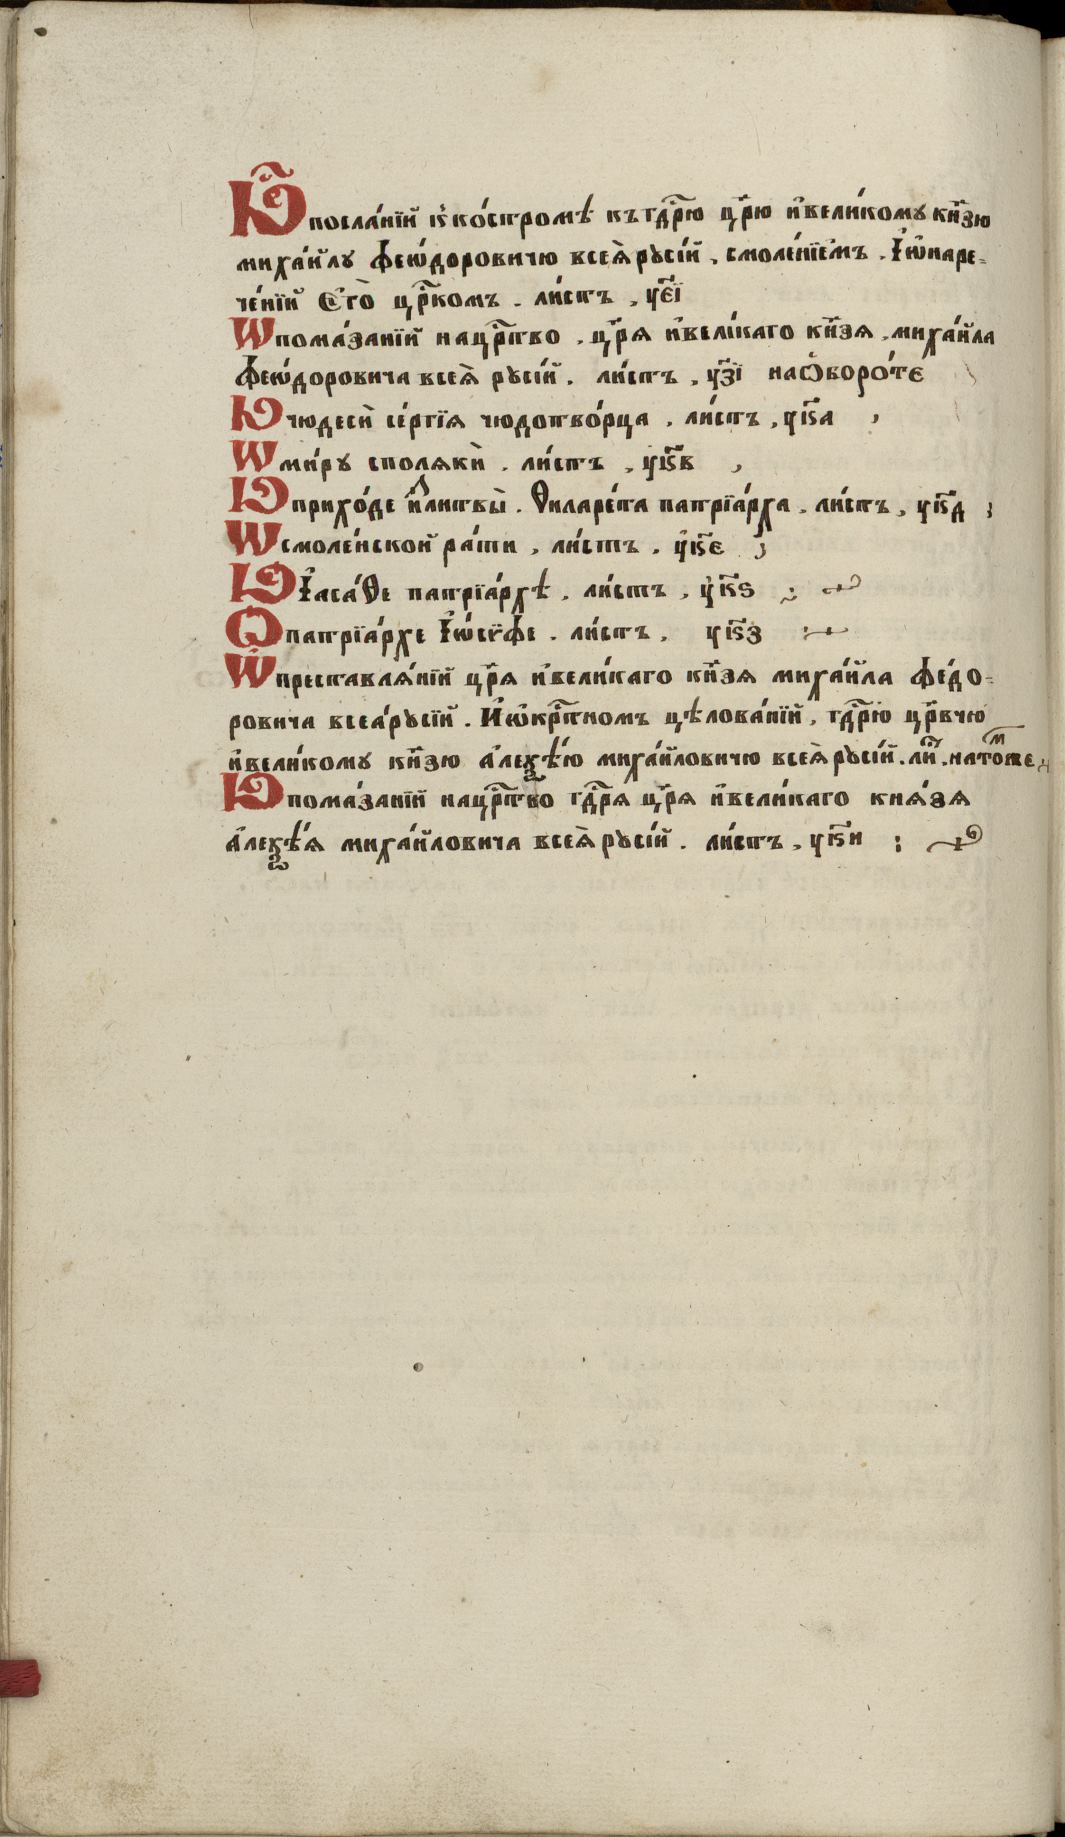 Ѡ҃ посла́нїй к̾ ко́стромѣ къ гдⷭ҇рю црⷭ҇ю и҆ вели́кому кн҃зю
миха́йлу фео́дѡровичю всеѧ̀ рꙋсі́й , с моле́нїемъ . І҆ ѡ҆ наре-
че́нїй є҆го̀ црⷭ҇комъ . ли́стъ , у҃еі
Ѡ пома́занїй на црⷭ҇тво , црⷭ҇ѧ и҆ вели́каго кн҃зѧ , миха́йла
феѡ́доровича всеѧ̀ рꙋсі́й . ли́стъ , у҃зі на ѻ҆боро́те
Ѡ чюдесѝ се́ргїѧ чюдотво́рца , ли́стъ , ук҃а
Ѡ ми́ру с полѧкѝ . ли́стъ , ук҃в
Ѡ прихо́де и҆з̾ литвы̀ . Ѳиларе́та патрїа́рха , ли́стъ , ук҃д
Ѡ смоле́нской ра́ти , ли́стъ . ук҃е
Ѡ І҆аса́ѳе патрїа́рхѣ , ли́стъ , ук҃ѕ
Ѡ патрїа́рхе І҆ѡ́сифе . ли́стъ , ук҃з
Ѡ преставлѧ́нїй црⷭ҇ѧ и҆ вели́каго кн҃зѧ миха́йла фе́до-
ровича всеа́ рꙋсїй . И҆ ѡ҆ крⷭ҇тномъ цѣлова́нїй , гдⷭ҇рю црⷭ҇вчю
и҆ вели́кому кн҃зю а҆леѯѣ́ю миха́йловичю всеѧ̀ рꙋсі́й . лиⷭ҇ . на томже
Ѡ пома́занїй на црⷭ҇тво гдⷭ҇рѧ црⷭ҇ѧ и҆ вели́каго кнѧ́зѧ
а҆леѯѣ́ѧ миха́йловича всеѧ̀ рꙋсі́й . ли́стъ , ук҃и